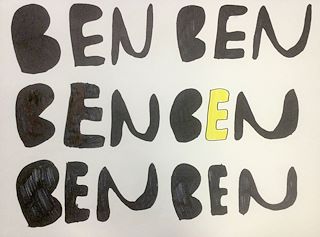 BEN BEN
BEN BEN
BEN BEN